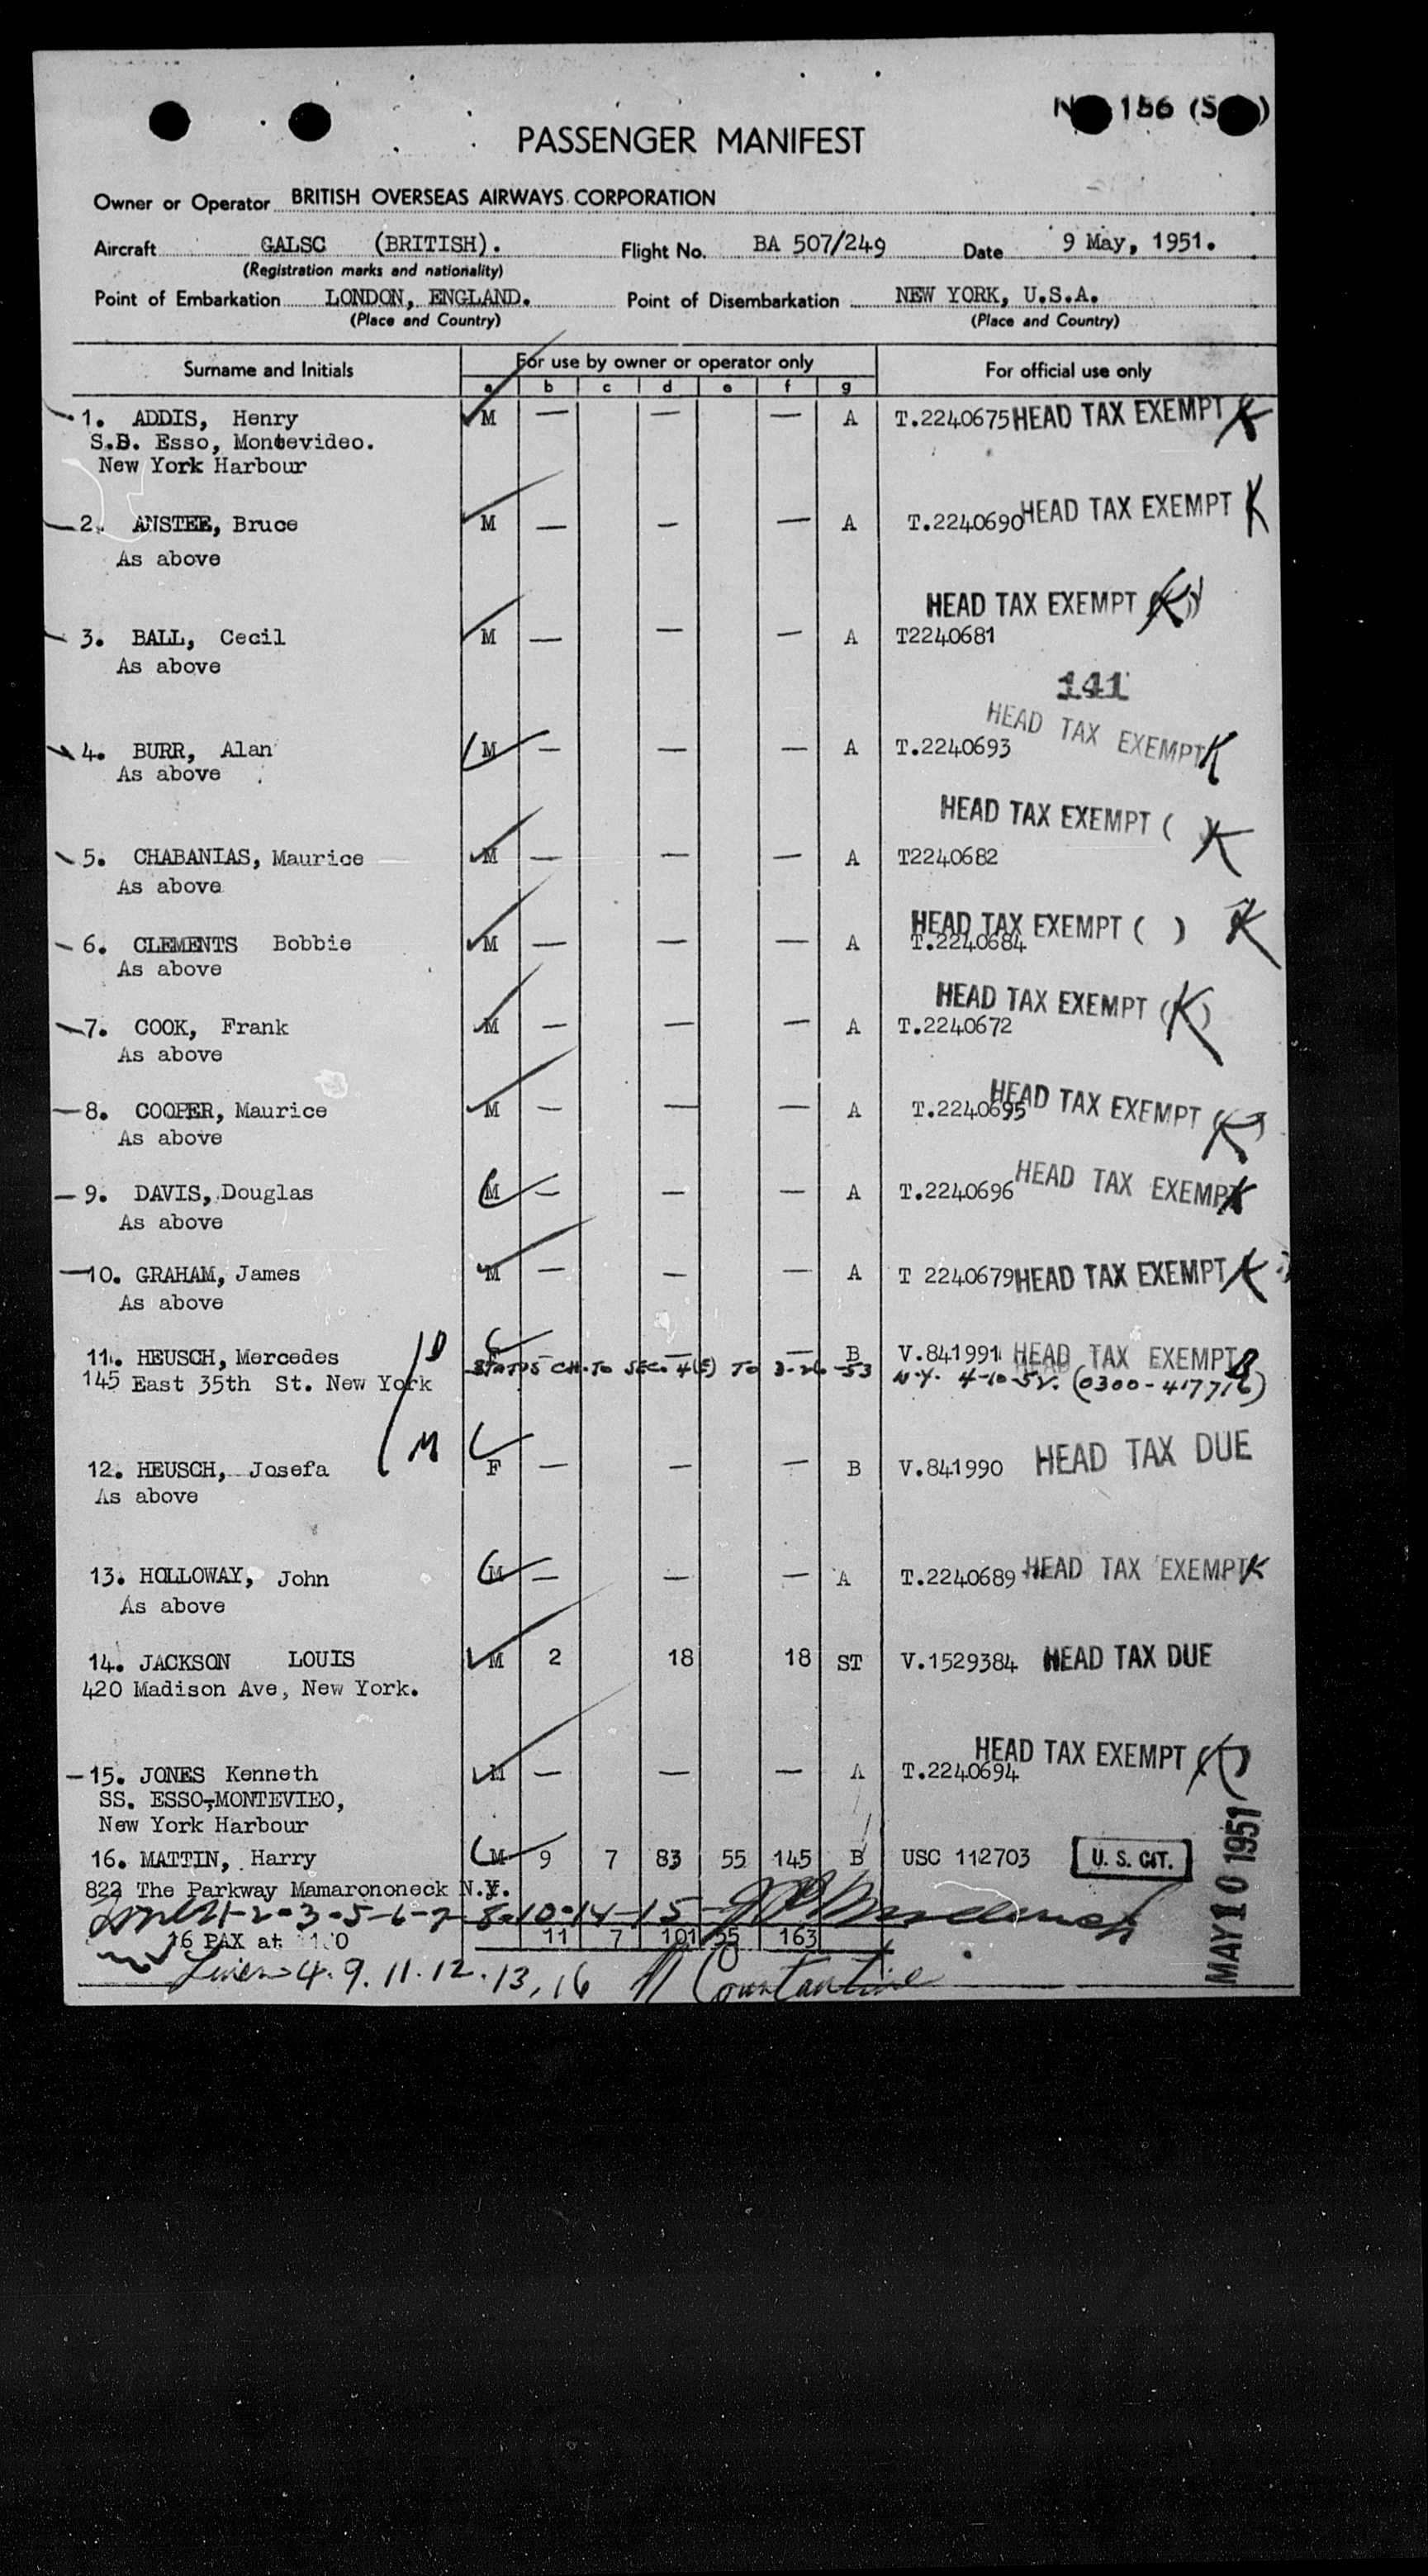 156 (S
PASSENGER MANIFEST
Owner or Operator BRITISH OVERSEAS AIRWAYS CORPORATION
Aircraft GALSC (BRITISH). Flight No. BA 507/249 Date 9 May, 1951.
(Registration marks and nationality)
Point of Embarkation LONDON, ENGLAND. Point of Disembarkation NEW YORK, U.S.A.
(Place and Country) (Place and Country)
Surname and Initials For use by owner or operator only For official use only
a b c d e f g
1. ADDIS, Henry M — — — A T.2240675 HEAD TAX EXEMPT K
S.B. Esso, Montevideo.
New York Harbour
2. ANSTEE, Bruce M — — — A T.2240690 HEAD TAX EXEMPT K
As above
HEAD TAX EXEMPT (K)
3. BALL, Cecil M — — — A T2240681
As above
141
HEAD TAX EXEMPT K
4. BURR, Alan M — — — A T.2240693
As above
HEAD TAX EXEMPT ( ) K
5. CHABANIAS, Maurice M — — — A T2240682
As above
HEAD TAX EXEMPT ( ) K
6. CLEMENTS Bobbie M — — — A T.2240684
As above
HEAD TAX EXEMPT (K)
7. COOK, Frank M — — — A T.2240672
As above
HEAD TAX EXEMPT (K)
8. COOPER, Maurice M — — — A T.2240695
As above
9. DAVIS, Douglas M — — — A T.2240696 HEAD TAX EXEMPT K
As above
10. GRAHAM, James M — — — A T 2240679 HEAD TAX EXEMPT K
As above
11. HEUSCH, Mercedes D F — — — B V.841991 HEAD TAX EXEMPT B
145 East 35th St. New York STATUS CH. TO SEC. 4(E) TO 3-26-53 N.Y. 4-10-52. (0300-417716)
M
12. HEUSCH, Josefa F — — — B V.841990 HEAD TAX DUE
As above
13. HOLLOWAY, John M — — — A T.2240689 HEAD TAX EXEMPT K
As above
14. JACKSON LOUIS M 2 18 18 ST V.1529384 HEAD TAX DUE
420 Madison Ave, New York.
HEAD TAX EXEMPT (K)
15. JONES Kenneth M — — — A T.2240694
SS. ESSO,-MONTEVIEO,
New York Harbour
16. MATTIN, Harry M 9 7 83 55 145 B USC 112703 U. S. CIT.
822 The Parkway Mamarononeck N.Y.
1-2-3-5-6-7-8-10-14-15
16 PAX at 11 7 101 55 163
Lines 4. 9. 11. 12. 13, 16 Constantine
MAY 10 1951